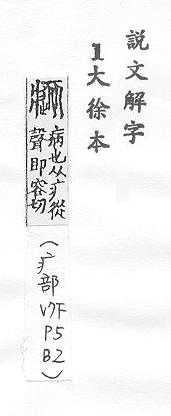 説文解字
1大徐本
病也从疒從
聲即容切
（疒部
V7下
P5
B2）